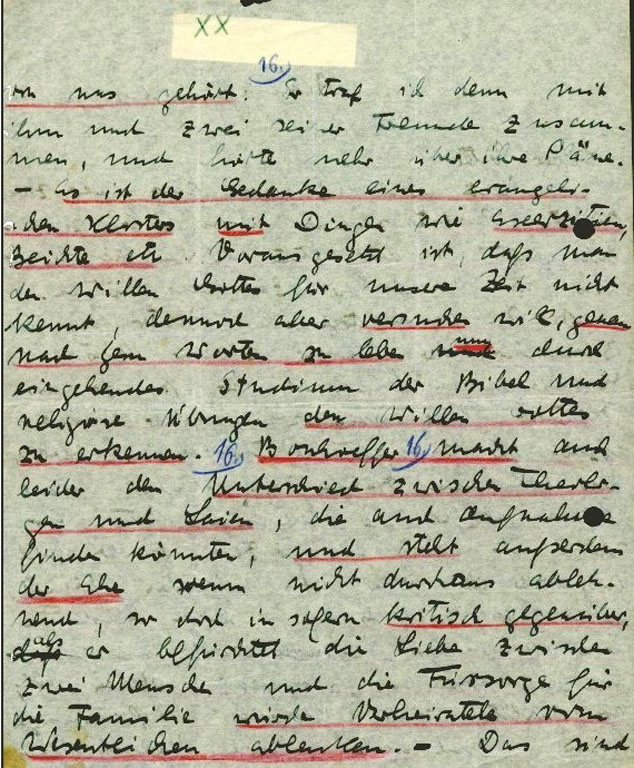 XX
16.)
von uns gehört. Er traf ich denn mit
ihm und zwei seiner Freunde zusam-
men, und hörte mehr über ihre Pläne.
– Es ist der Gedanke eines evangeli-
schen Klosters mit Dingen wie Exerzitien,
Beichte etc. Vorausgesetzt ist, daß man
den Willen Gottes für unsere Zeit nicht
kennt, dennoch aber versuchen will, genau
nach sein Worten zu leben durch
eingehendes Studium der Bibel und
religiöse Übungen den Willen Gottes
zu erkennen. 16.) Bonhoeffer 16.) macht auch
leider den Unterschied zwischen Theolo-
gen und Laien, die auch Aufnahme
finden könnten, und steht außerdem
der Ehe wenn nicht durchaus ableh-
nend, so doch in sofern kritisch gegenüber,
als er befürchtet die Liebe zwischen
zwei Menschen und die Fürsorge für
die Familie würde Verheiratete vom
Wesentlichen ablenken. – Das sind